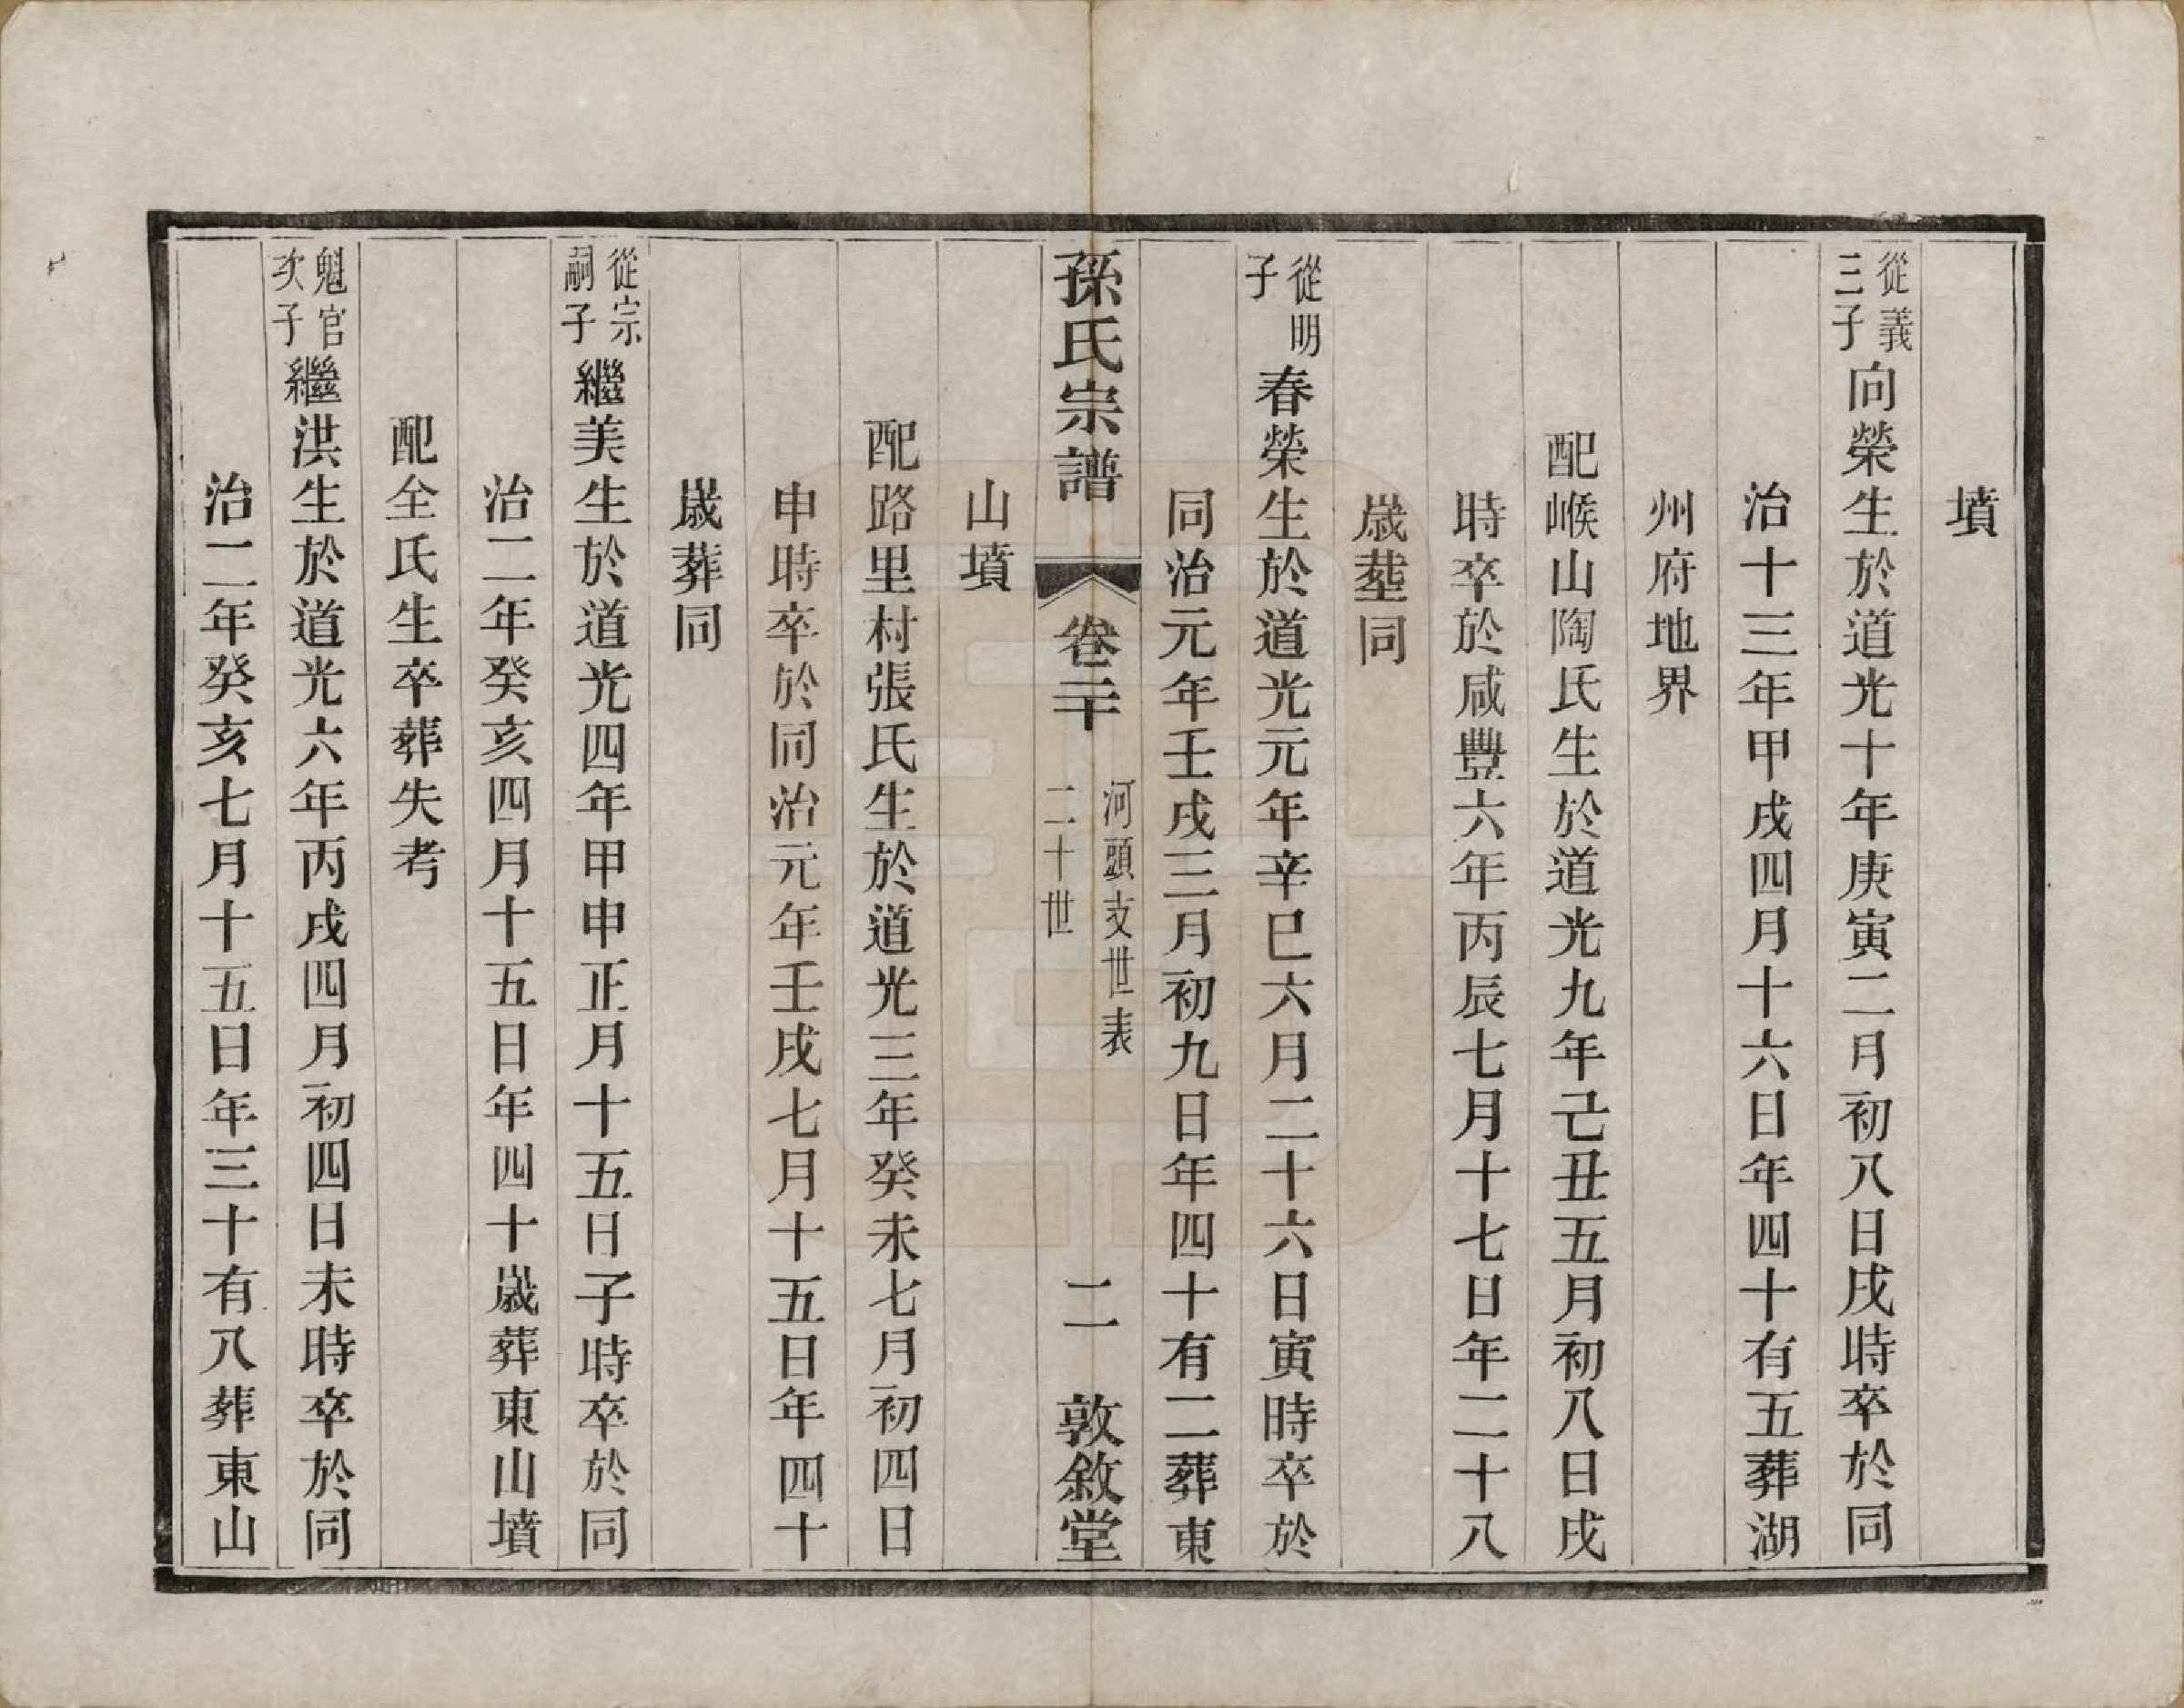 墳
從義三子向榮生於道光十年庚寅二月初八日戌時卒於同
治十三年甲戌四月十六日年四十有五葬湖
州府地界
配㠋山陶氏生於道光九年己丑五月初八日戌
時卒於咸豐六年丙辰七月十七日年二十八
歲塟同
從明子春榮生於道光元年辛巳六月二十六日寅時卒於
同治元年壬戌三月初九日年四十有二葬東
山墳
孫氏宗譜 卷二十 河頭支世表 二十世 二 敦敘堂
配路里村張氏生於道光三年癸未七月初四日
申時卒於同治元年壬戌七月十五日年四十
歲葬同
從宗嗣子繼美生於道光四年甲申正月十五日子時卒於同
治二年癸亥四月十五日年四十歲葬東山墳
配全氏生卒葬失考
魁官次子繼洪生於道光六年丙戌四月初四日未時卒於同
治二年癸亥七月十五日年三十有八葬東山